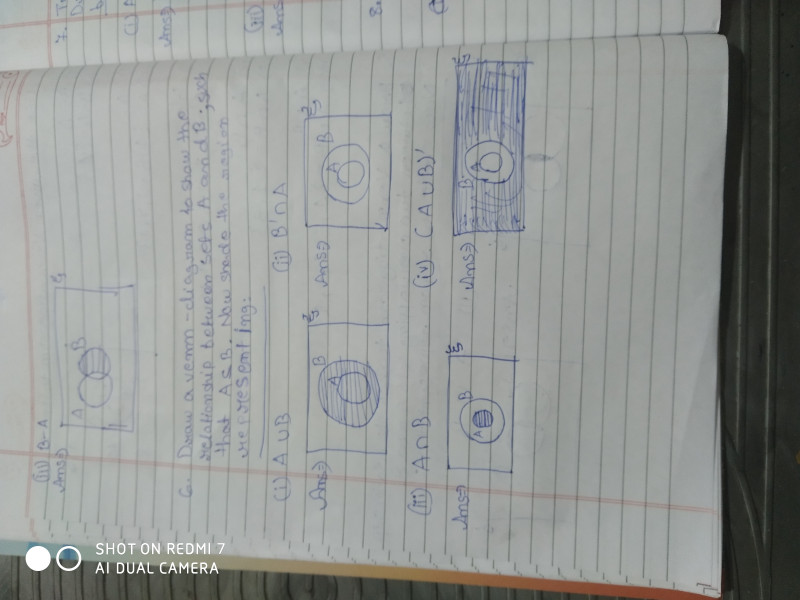 (iii) B-A
Ans⇒
A B ξ
6. Draw a venn-diagram to show the
relationship between sets A and B, such
that A⊆B. Now shade the region
representing:
(i) A∪B (ii) B'∩A
Ans⇒ A B ξ Ans⇒ A B ξ
(iii) A∩B (iv) (A∪B)'
Ans⇒ A B ξ Ans⇒ A B ξ
7.
(i)
Ans⇒
(iii)
Ans
8.
SHOT ON REDMI 7
AI DUAL CAMERA